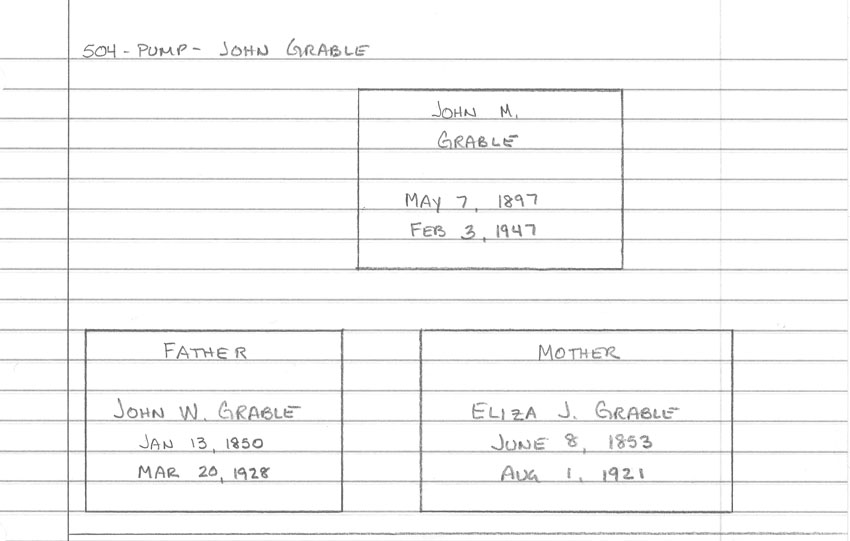 504 - PUMP - JOHN GRABLE
JOHN M.
GRABLE
MAY 7, 1897
FEB 3, 1947
FATHER
JOHN W. GRABLE
JAN 13, 1850
MAR 20, 1928
MOTHER
ELIZA J. GRABLE
JUNE 8, 1853
AUG 1, 1921